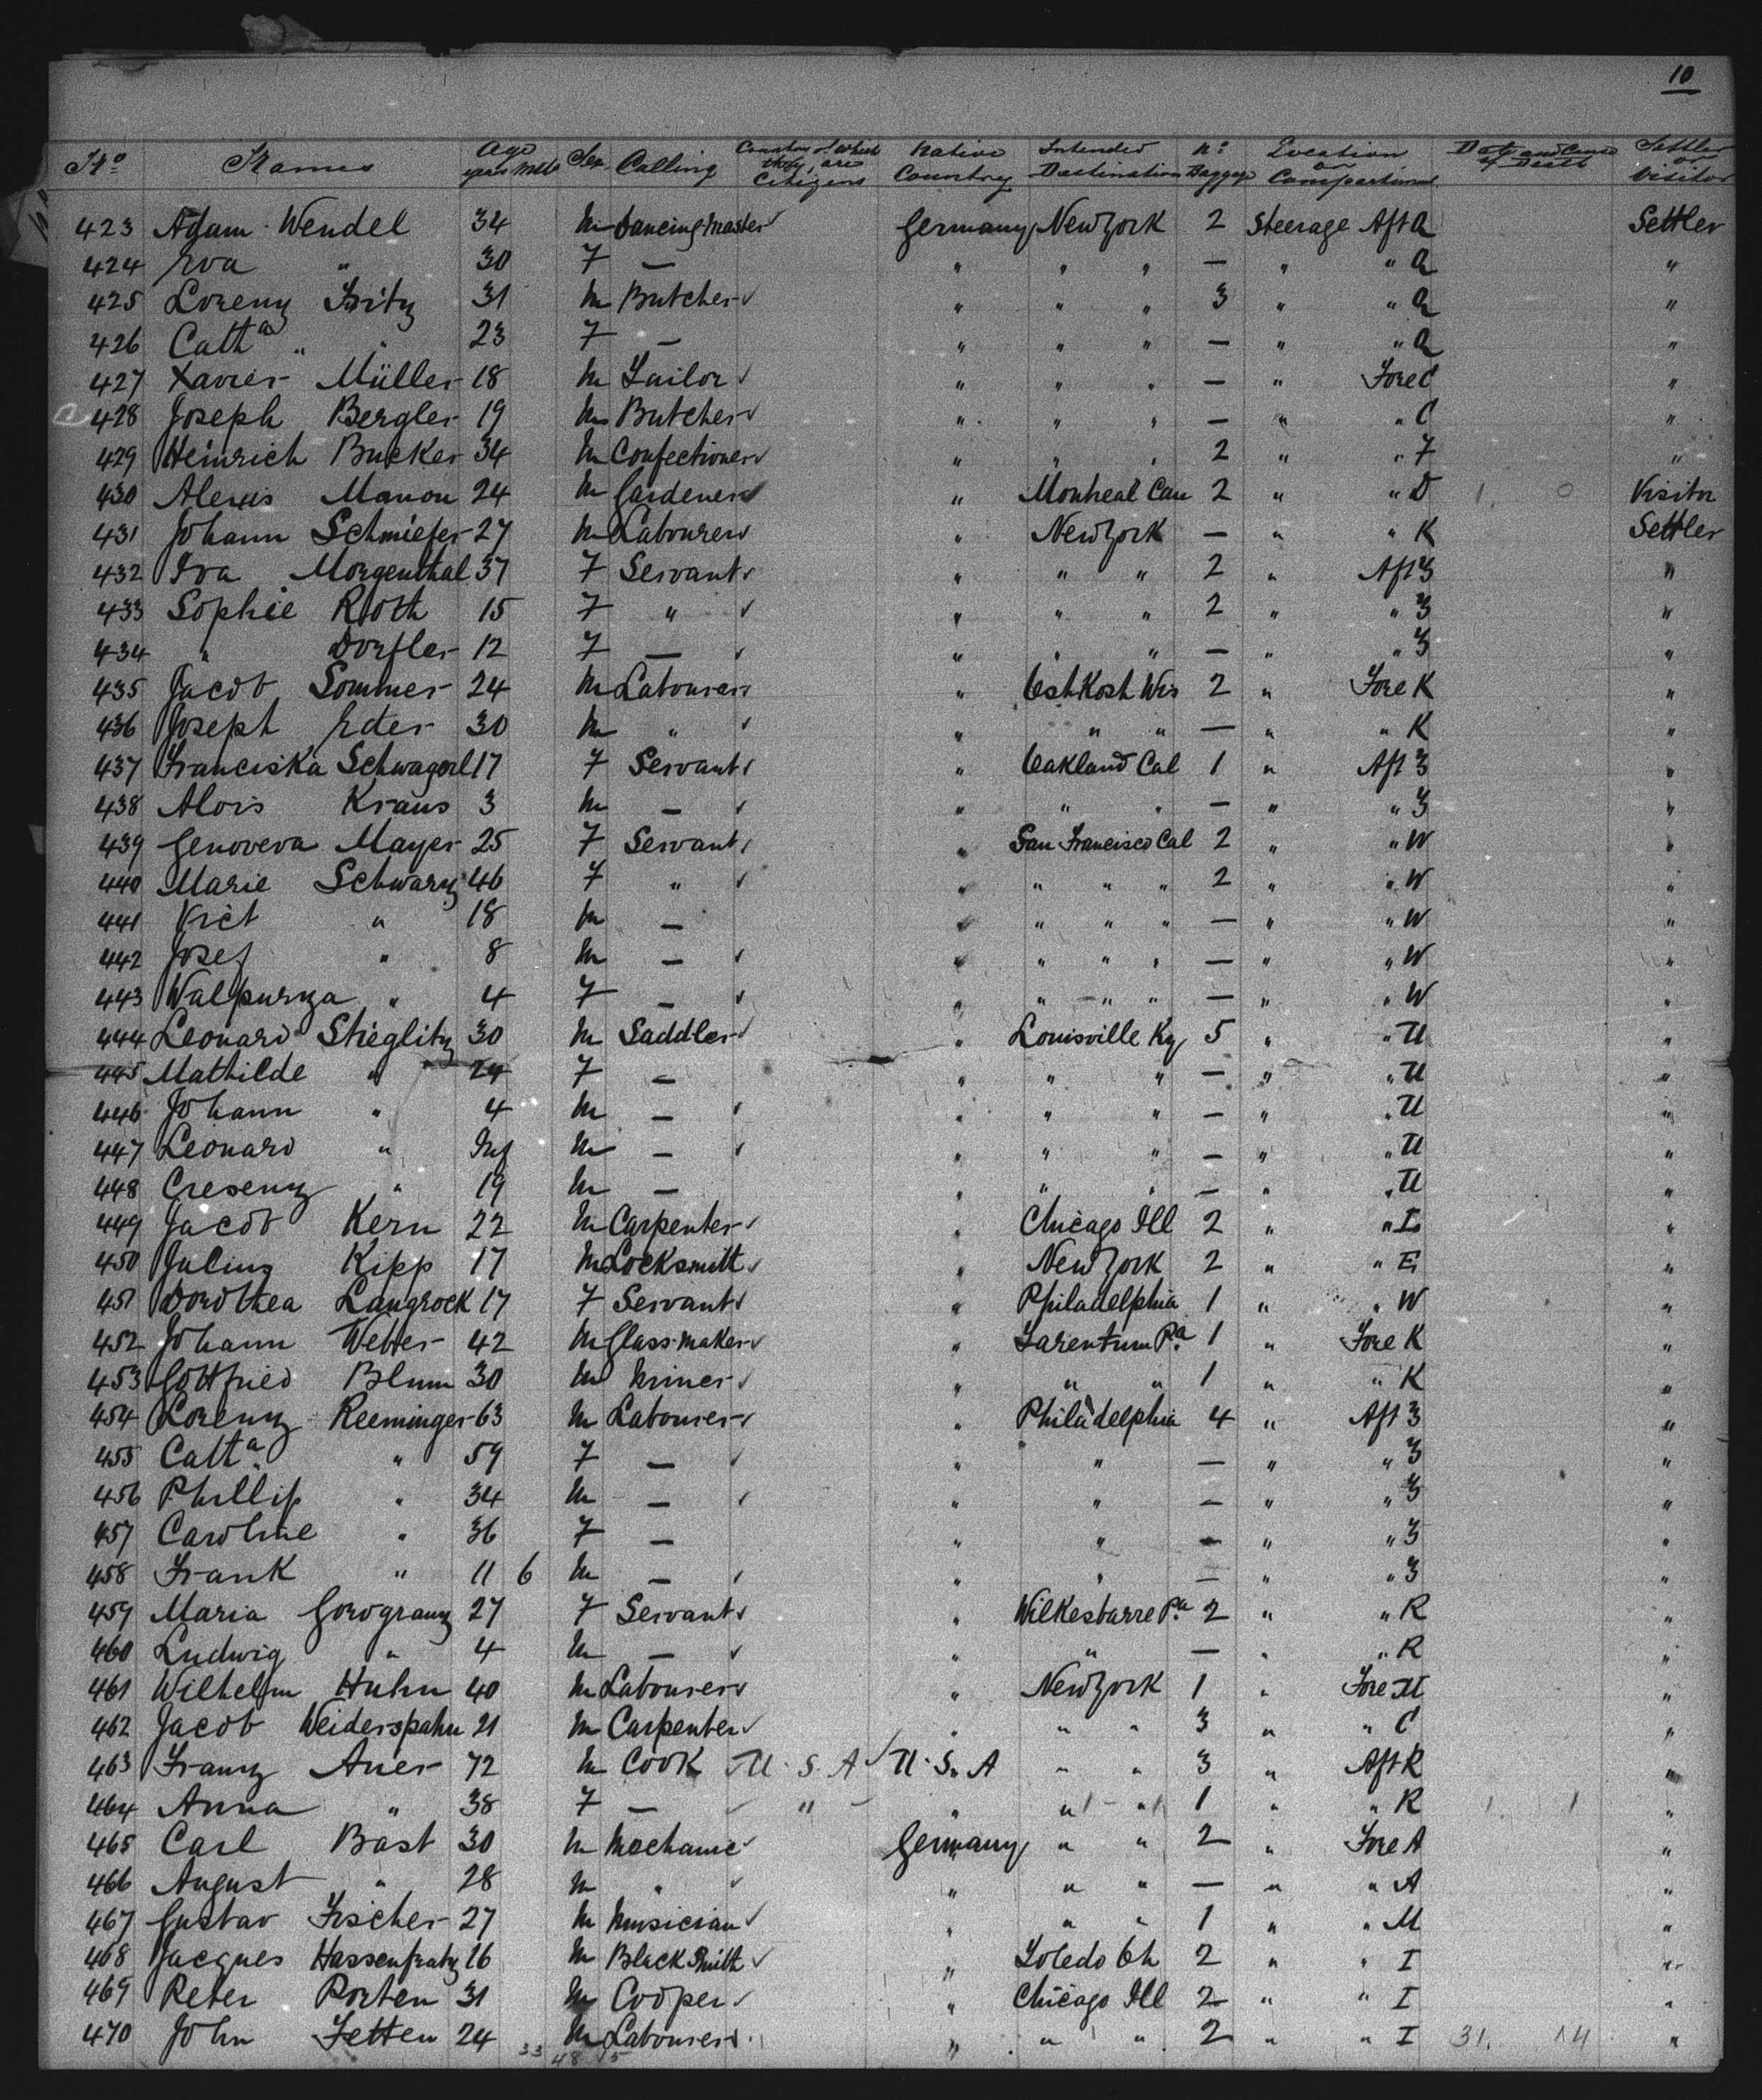 10
No. Names Age years Mths Sex Calling Country of which they are Citizens Native Country Intended Destination No. Baggage Location or Compartment Date and Cause of Death Settler or Visitor
423 Adam Wendel 34 M Dancing Master Germany New York 2 Steerage Aft Q Settler
424 Eva " 30 F — " " " — " " Q "
425 Lorenz Fritz 31 M Butcher " " " 3 " " Q "
426 Cath a " " 23 F — " " " — " " Q "
427 Xavier Müller 18 M Tailor " " " — " Fore C "
428 Joseph Bergler 19 M Butcher " " " — " " C "
429 Heinrich Bucker 34 M Confectioner " " " 2 " " F "
430 Alexis Manon 24 M Gardener " Montreal Can 2 " " D 1 0 Visitor
431 Johann Schmiefer 27 M Labourer " New York — " " K Settler
432 Eva Morgenthal 37 F Servant " " " 2 " Aft Z "
433 Sophie Roth 15 F " " " " 2 " " Z "
434 " Dorfler 12 F — " " " — " " Z "
435 Jacob Sommer 24 M Labourer " Oshkosh Wis 2 " Fore K "
436 Joseph Eder 30 M " " " " — " " K "
437 Franciska Schwagerl 17 F Servant " Oakland Cal 1 " Aft Z "
438 Alois Kraus 3 M — " " " — " " Z "
439 Genoveva Mayer 25 F Servant " San Francisco Cal 2 " " W "
440 Marie Schwarz 46 F " " " " " 2 " " W "
441 Vict " 18 M — " " " " — " " W "
442 Josef " 8 M — " " " " — " " W "
443 Walpurga " 4 F — " " " " — " " W "
444 Leonard Stieglitz 30 M Saddler " Louisville Ky 5 " " U "
445 Mathilde " 24 F — " " " — " " U "
446 Johann " 4 M — " " " — " " U "
447 Leonard " Inf M — " " " — " " U "
448 Cresenz " 19 M — " " " — " " U "
449 Jacob Kern 22 M Carpenter " Chicago Ill 2 " " I "
450 Julius Kipp 17 M Locksmith " New York 2 " " E "
451 Dorothea Langrock 17 F Servant " Philadelphia 1 " " W "
452 Johann Weber 42 M Glass-maker " Tarentum Pa 1 " Fore K "
453 Gottfried Blum 30 M Miner " " " 1 " " K "
454 Lorenz Reeminger 63 M Labourer " Philadelphia 4 " Aft Z "
455 Cath a " 59 F — " " — " " Z "
456 Phillip " 34 M — " " — " " Z "
457 Caroline " 36 F — " " — " " Z "
458 Frank " 11 6 M — " " — " " Z "
459 Maria Gorogranz 27 F Servant " Wilkesbarre Pa 2 " " R "
460 Ludwig " 4 M — " " — " " R "
461 Wilhelm Huhn 40 M Labourer " New York 1 " Fore M "
462 Jacob Weiderspahn 21 M Carpenter " " " 3 " " C "
463 Franz Auer 72 M Cook U.S.A U.S.A " " 3 " Aft R "
464 Anna " 38 F — " " " " 1 " " R 1 1 "
465 Carl Bast 30 M Mechanic Germany " " 2 " Fore A "
466 August " 28 M " " " " — " " A "
467 Gustav Fischer 27 M Musician " " " 1 " " M "
468 Jacques Hassenfratz 16 M Black Smith " Toledo Oh 2 " " I "
469 Peter Porten 31 M Cooper " Chicago Ill 2 " " I "
470 John Fetten 24 M Labourer " " " 2 " " I 31. 14 "
33 48 15